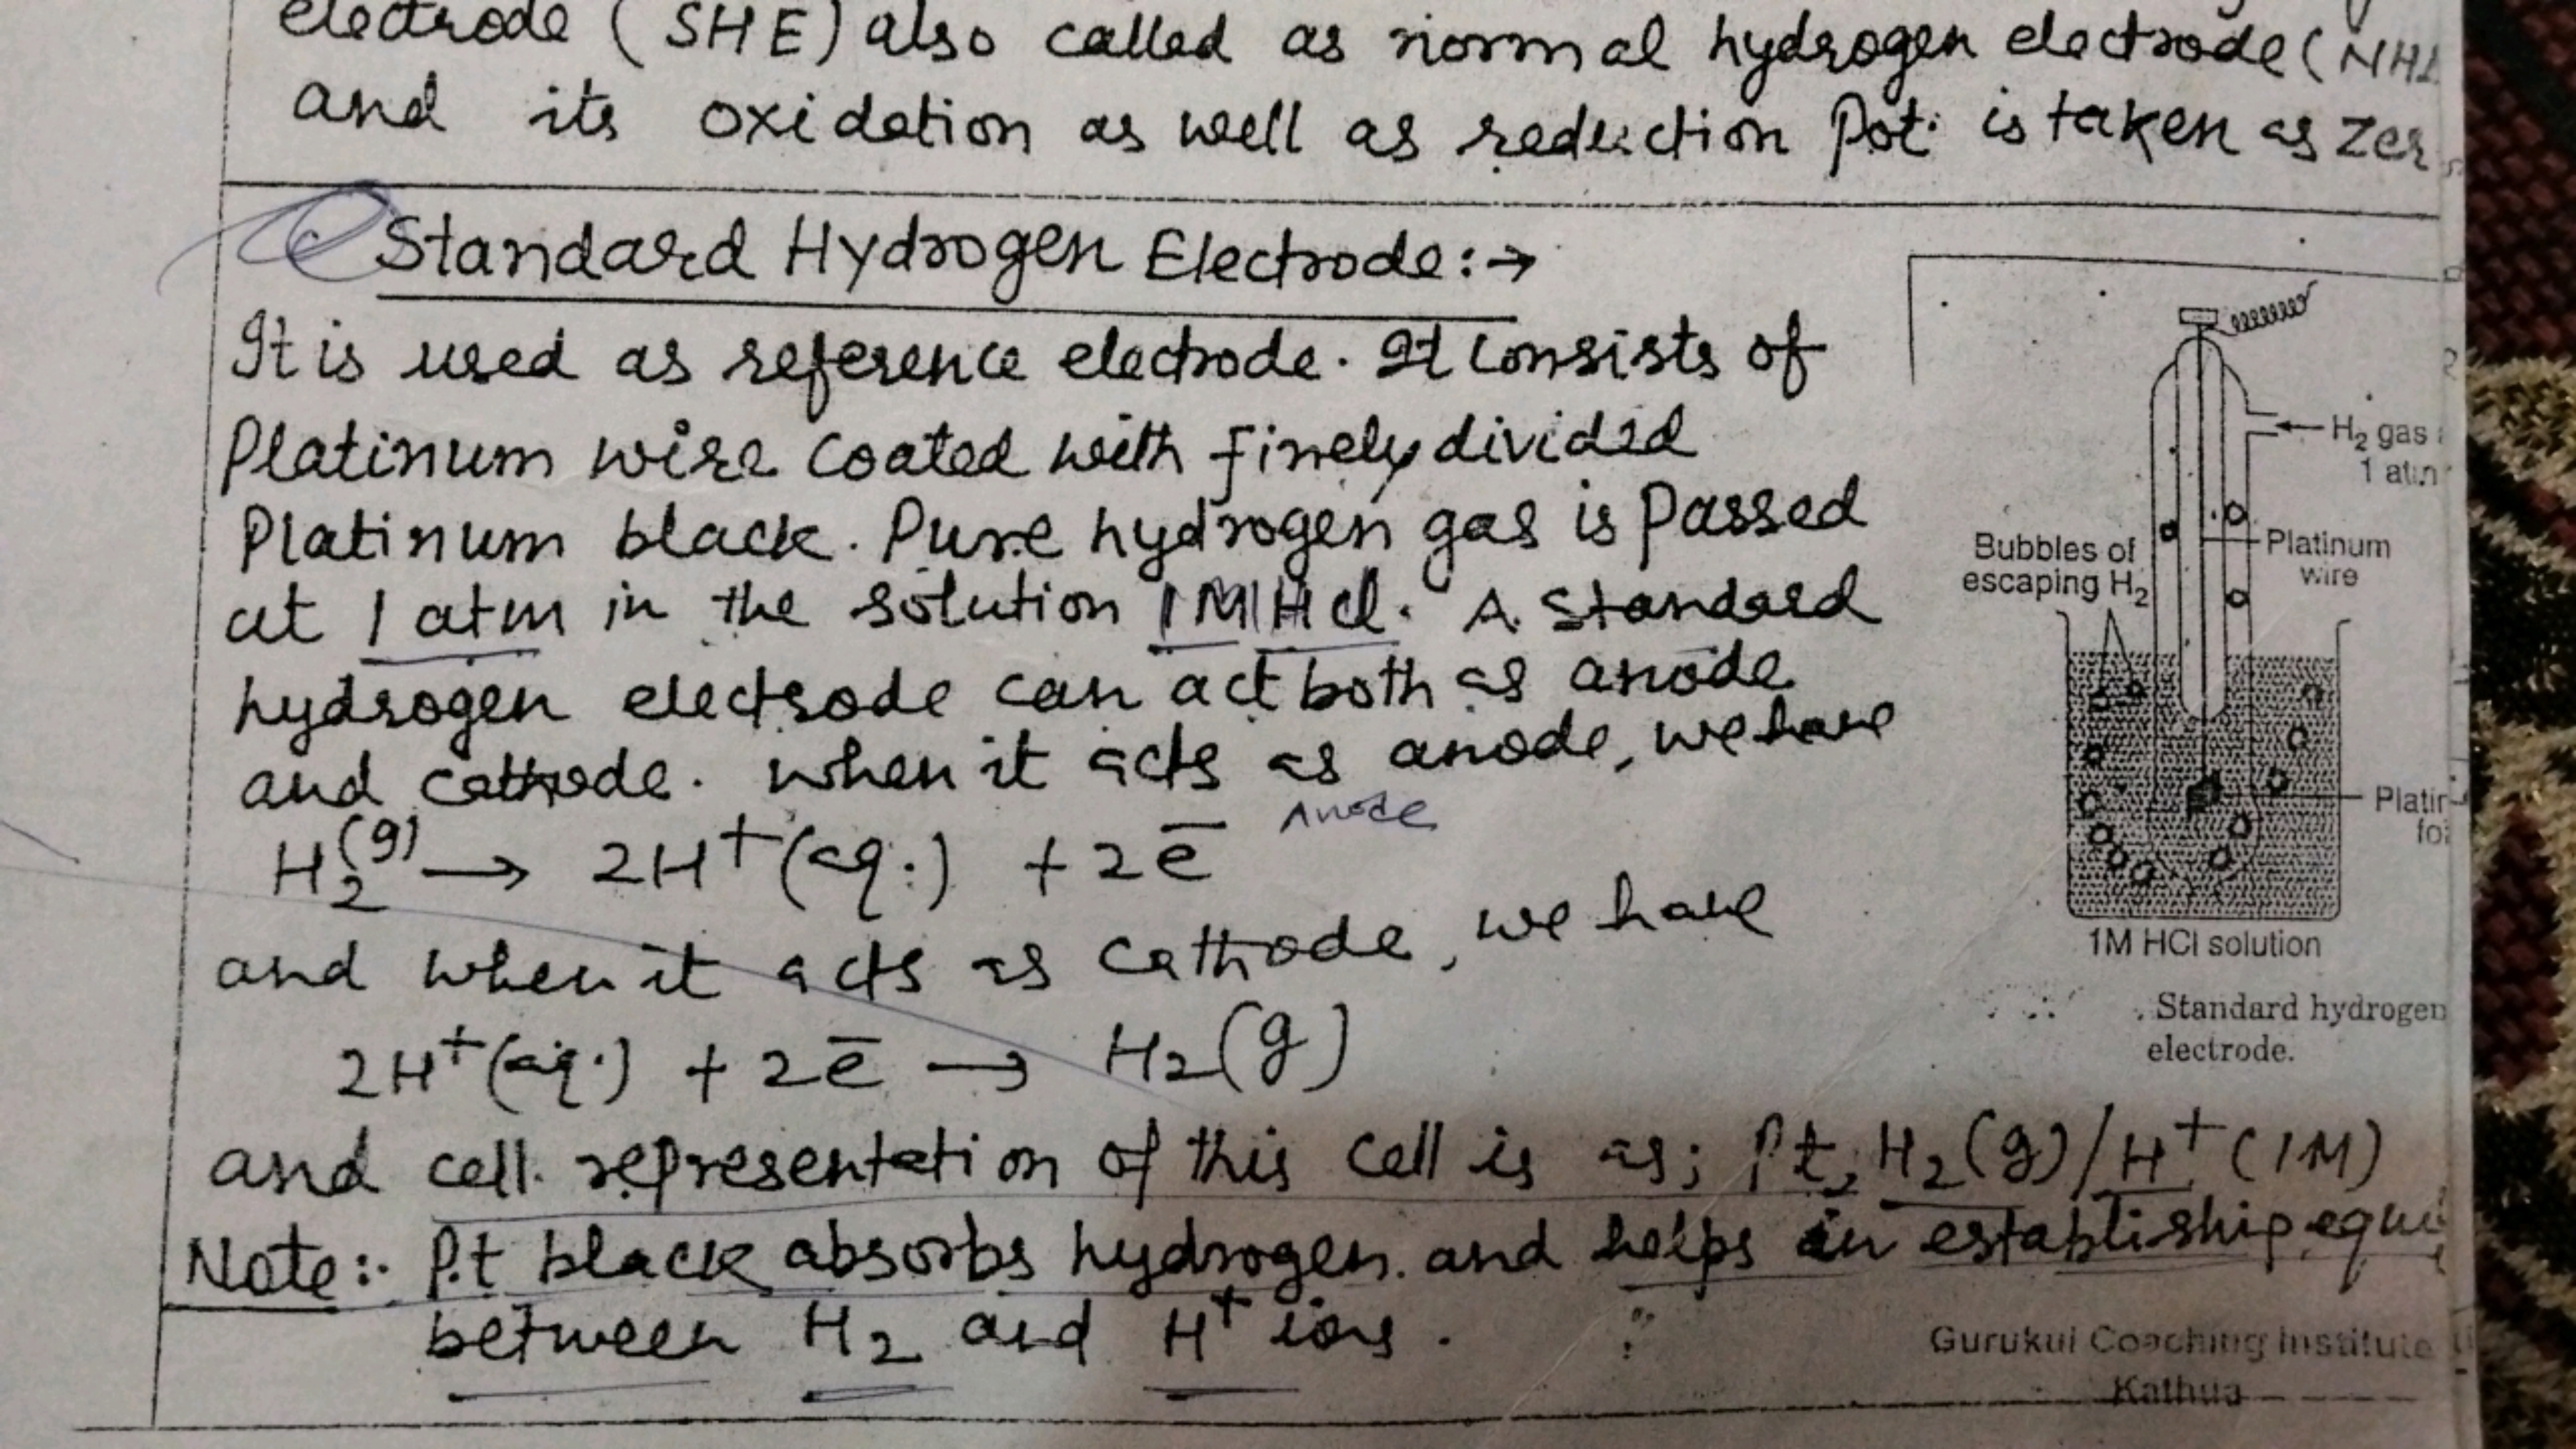 electrode (SHE) also called as normal hydrogen electrode (NHE
and its oxidation as well as reduction Pot. is taken as Zer
Standard Hydrogen Electrode:→
It is used as reference electrode. It consists of
Platinum wire coated with finely divided
Platinum black. Pure hydrogen gas is passed
at 1 atm in the solution 1M HCl. A standard
hydrogen electrode can act both as anode
and cathode. when it acts as anode, we have
Anode
H₂(g) → 2H⁺(aq.) + 2e̅
and when it acts as cathode, we have
2H⁺(aq.) + 2e̅ → H₂(g)
and cell representation of this cell is as; Pt, H₂(g)/H⁺(1M)
Note:- Pt black absorbs hydrogen and helps in establiship equi
between H₂ and H⁺ ions.
H₂ gas
1 atm
Bubbles of
escaping H₂
Platinum
wire
Platin
foi
1M HCl solution
Standard hydrogen
electrode.
Gurukul Coaching Institute
Kathua